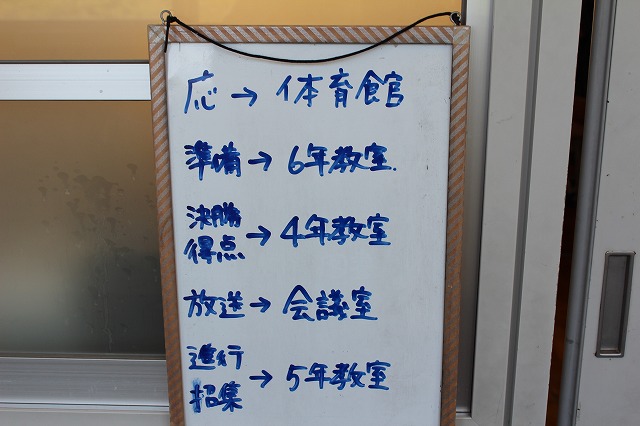 応→体育館
準備→6年教室.
決勝
得点→4年教室
放送→会議室
進行
招集→5年教室